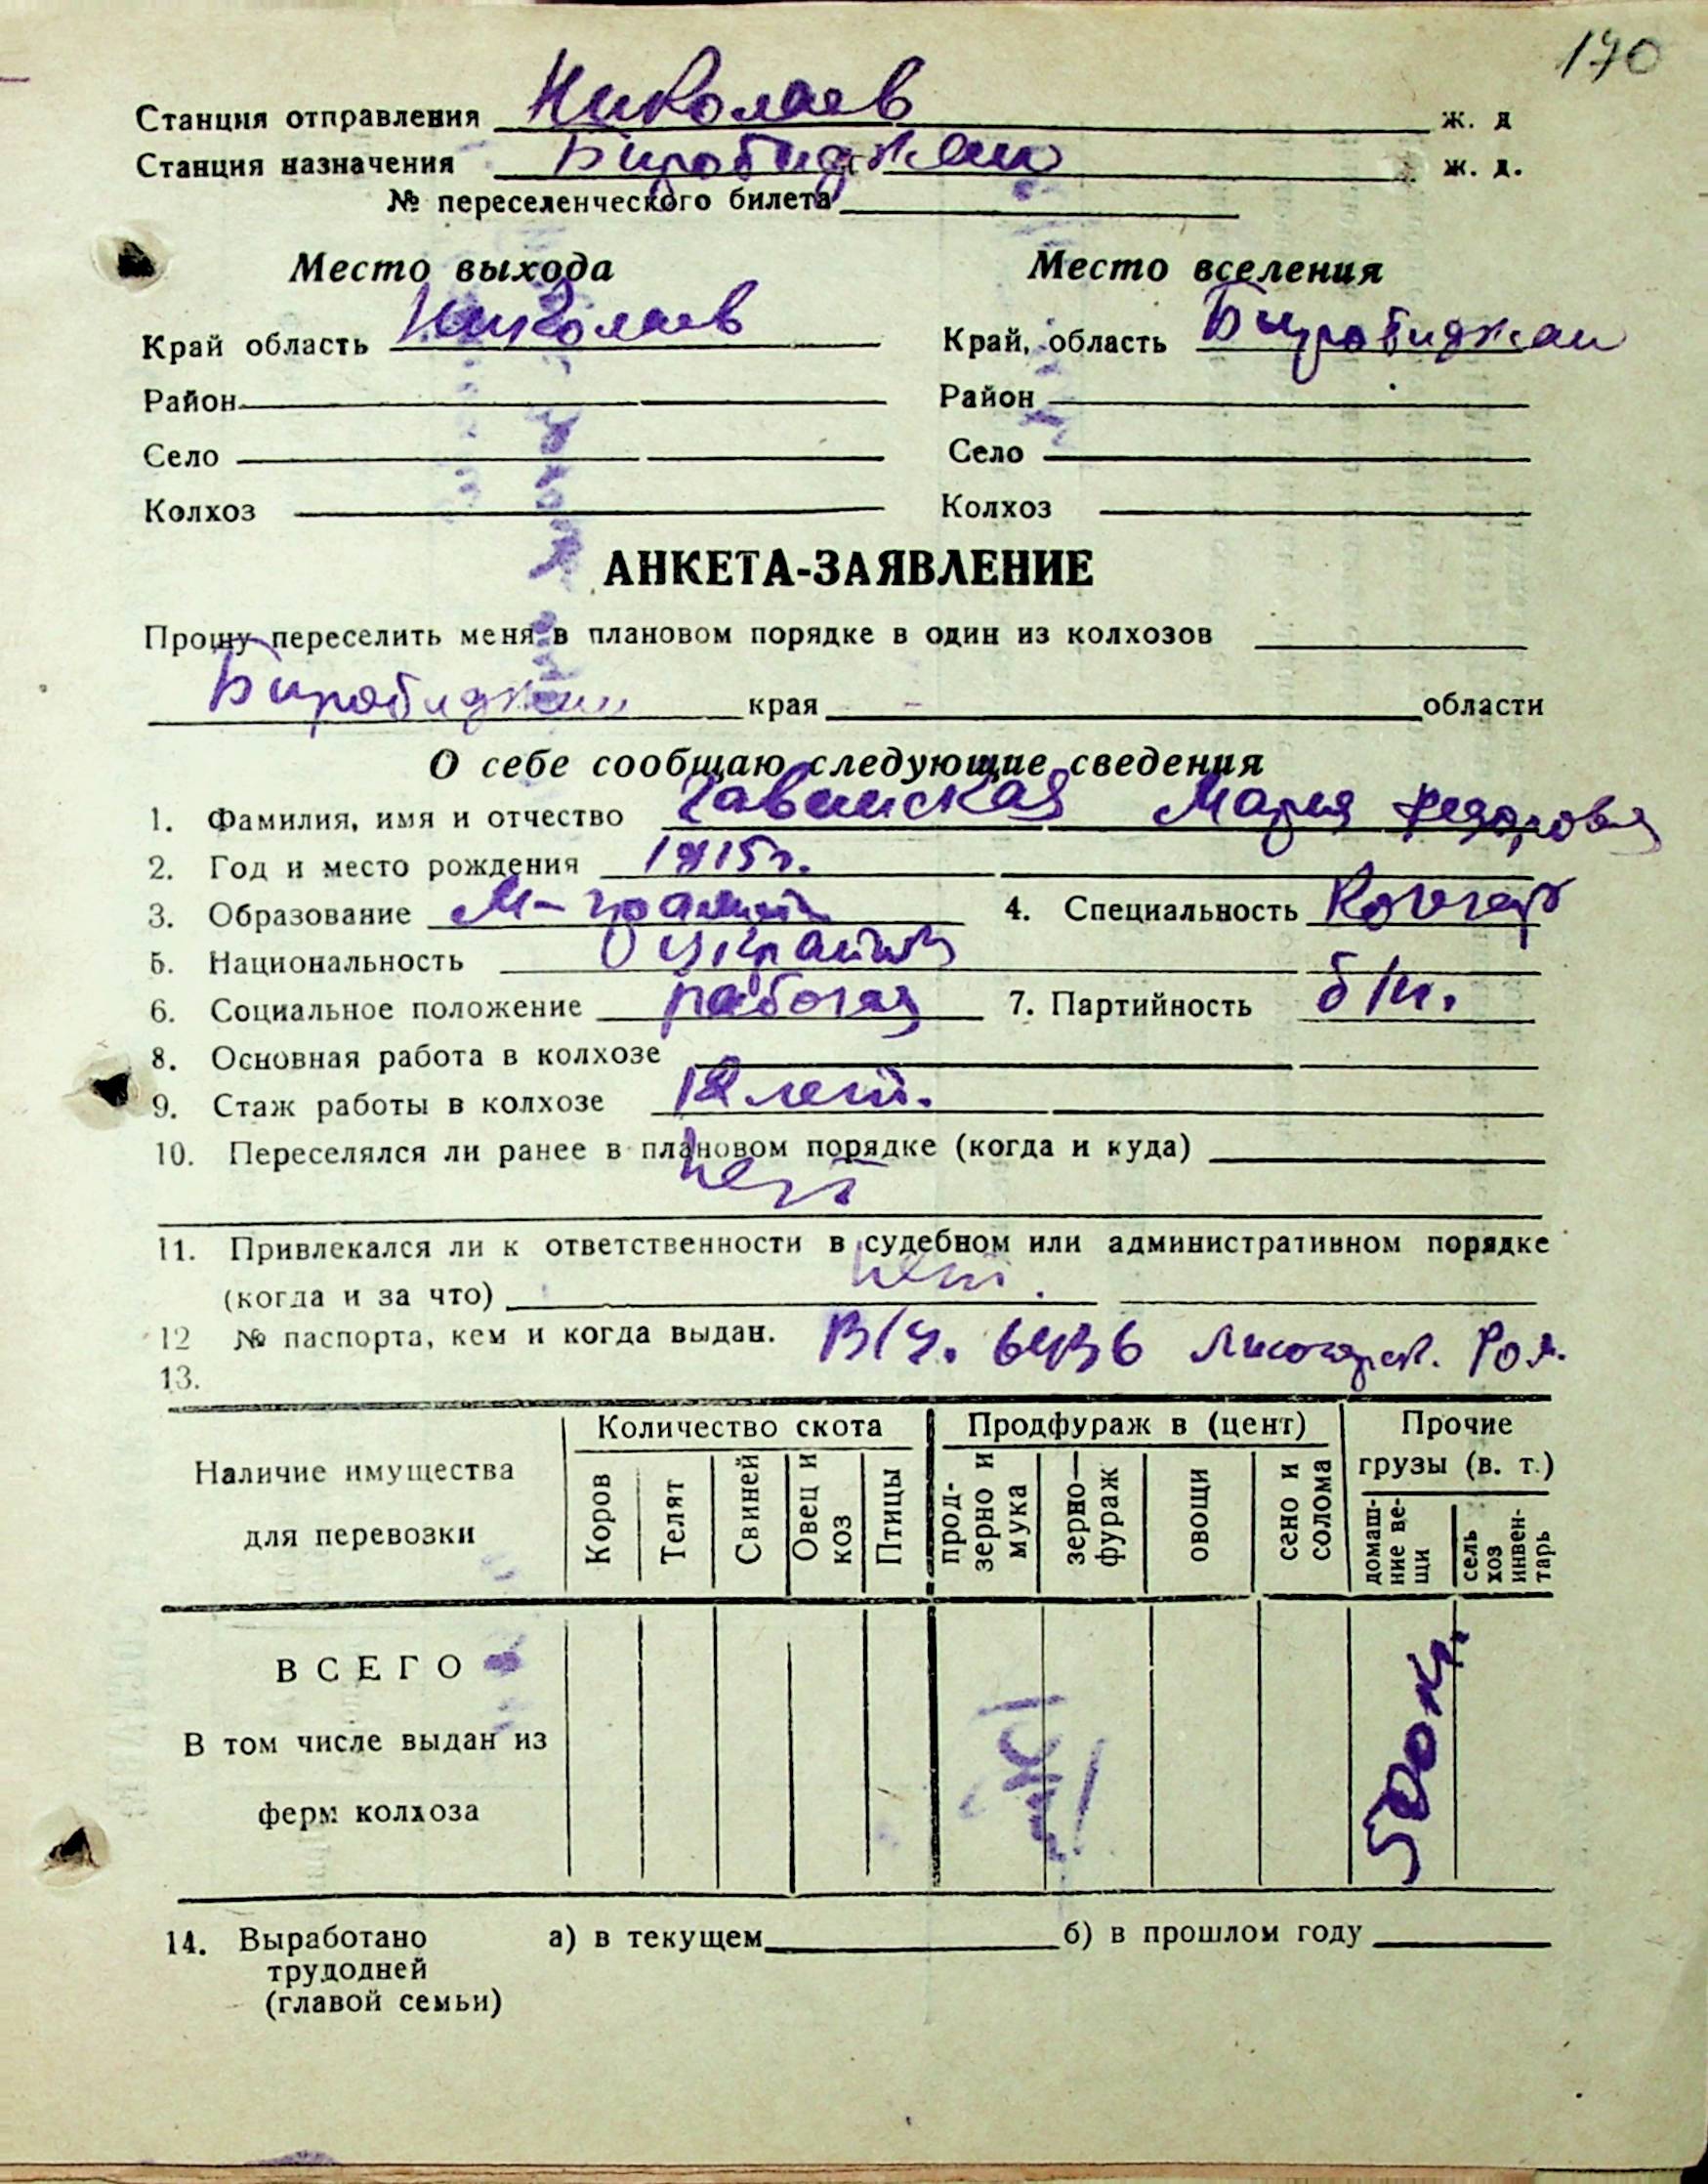 170
Станция отправления Николаев ж. д
Станция назначения Биробиджан ж. д.
№ переселенческого билета
Место выхода Место вселения
Край область Николаев Край, область Биробиджан
Район Район
Село Село
Колхоз Колхоз
АНКЕТА-ЗАЯВЛЕНИЕ
Прошу переселить меня в плановом порядке в один из колхозов
Биробиджан края - области
О себе сообщаю следующие сведения
1. Фамилия, имя и отчество Мария Федоровна
2. Год и место рождения 1915г.
3. Образование м-грамот 4. Специальность
5. Национальность украинк
6. Социальное положение рабочая 7. Партийность б/п.
8. Основная работа в колхозе
9. Стаж работы в колхозе 12 лет.
10. Переселялся ли ранее в плановом порядке (когда и куда)
нет
11. Привлекался ли к ответственности в судебном или административном порядке
(когда и за что) нет.
12 № паспорта, кем и когда выдан. 6436
13.
Наличие имущества для перевозки Количество скота Продфураж в (цент) Прочие грузы (в. т.)
Коров Телят Свиней Овец и коз Птицы прод-зерно и мука зерно-фураж овощи сено и солома домаш-ние ве-щи сель хоз инвен-тарь
ВСЕГО
500 кг.
В том числе выдан из
ферм колхоза
14. Выработано а) в текущем б) в прошлом году
трудодней
(главой семьи)